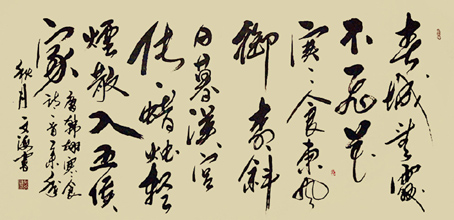 春城無處
不飛花
寒食東風
御柳斜
日暮漢宮
傳蠟燭輕
煙散入五侯
家
唐韓翃寒食
詩一首乙未年
秋月文海書